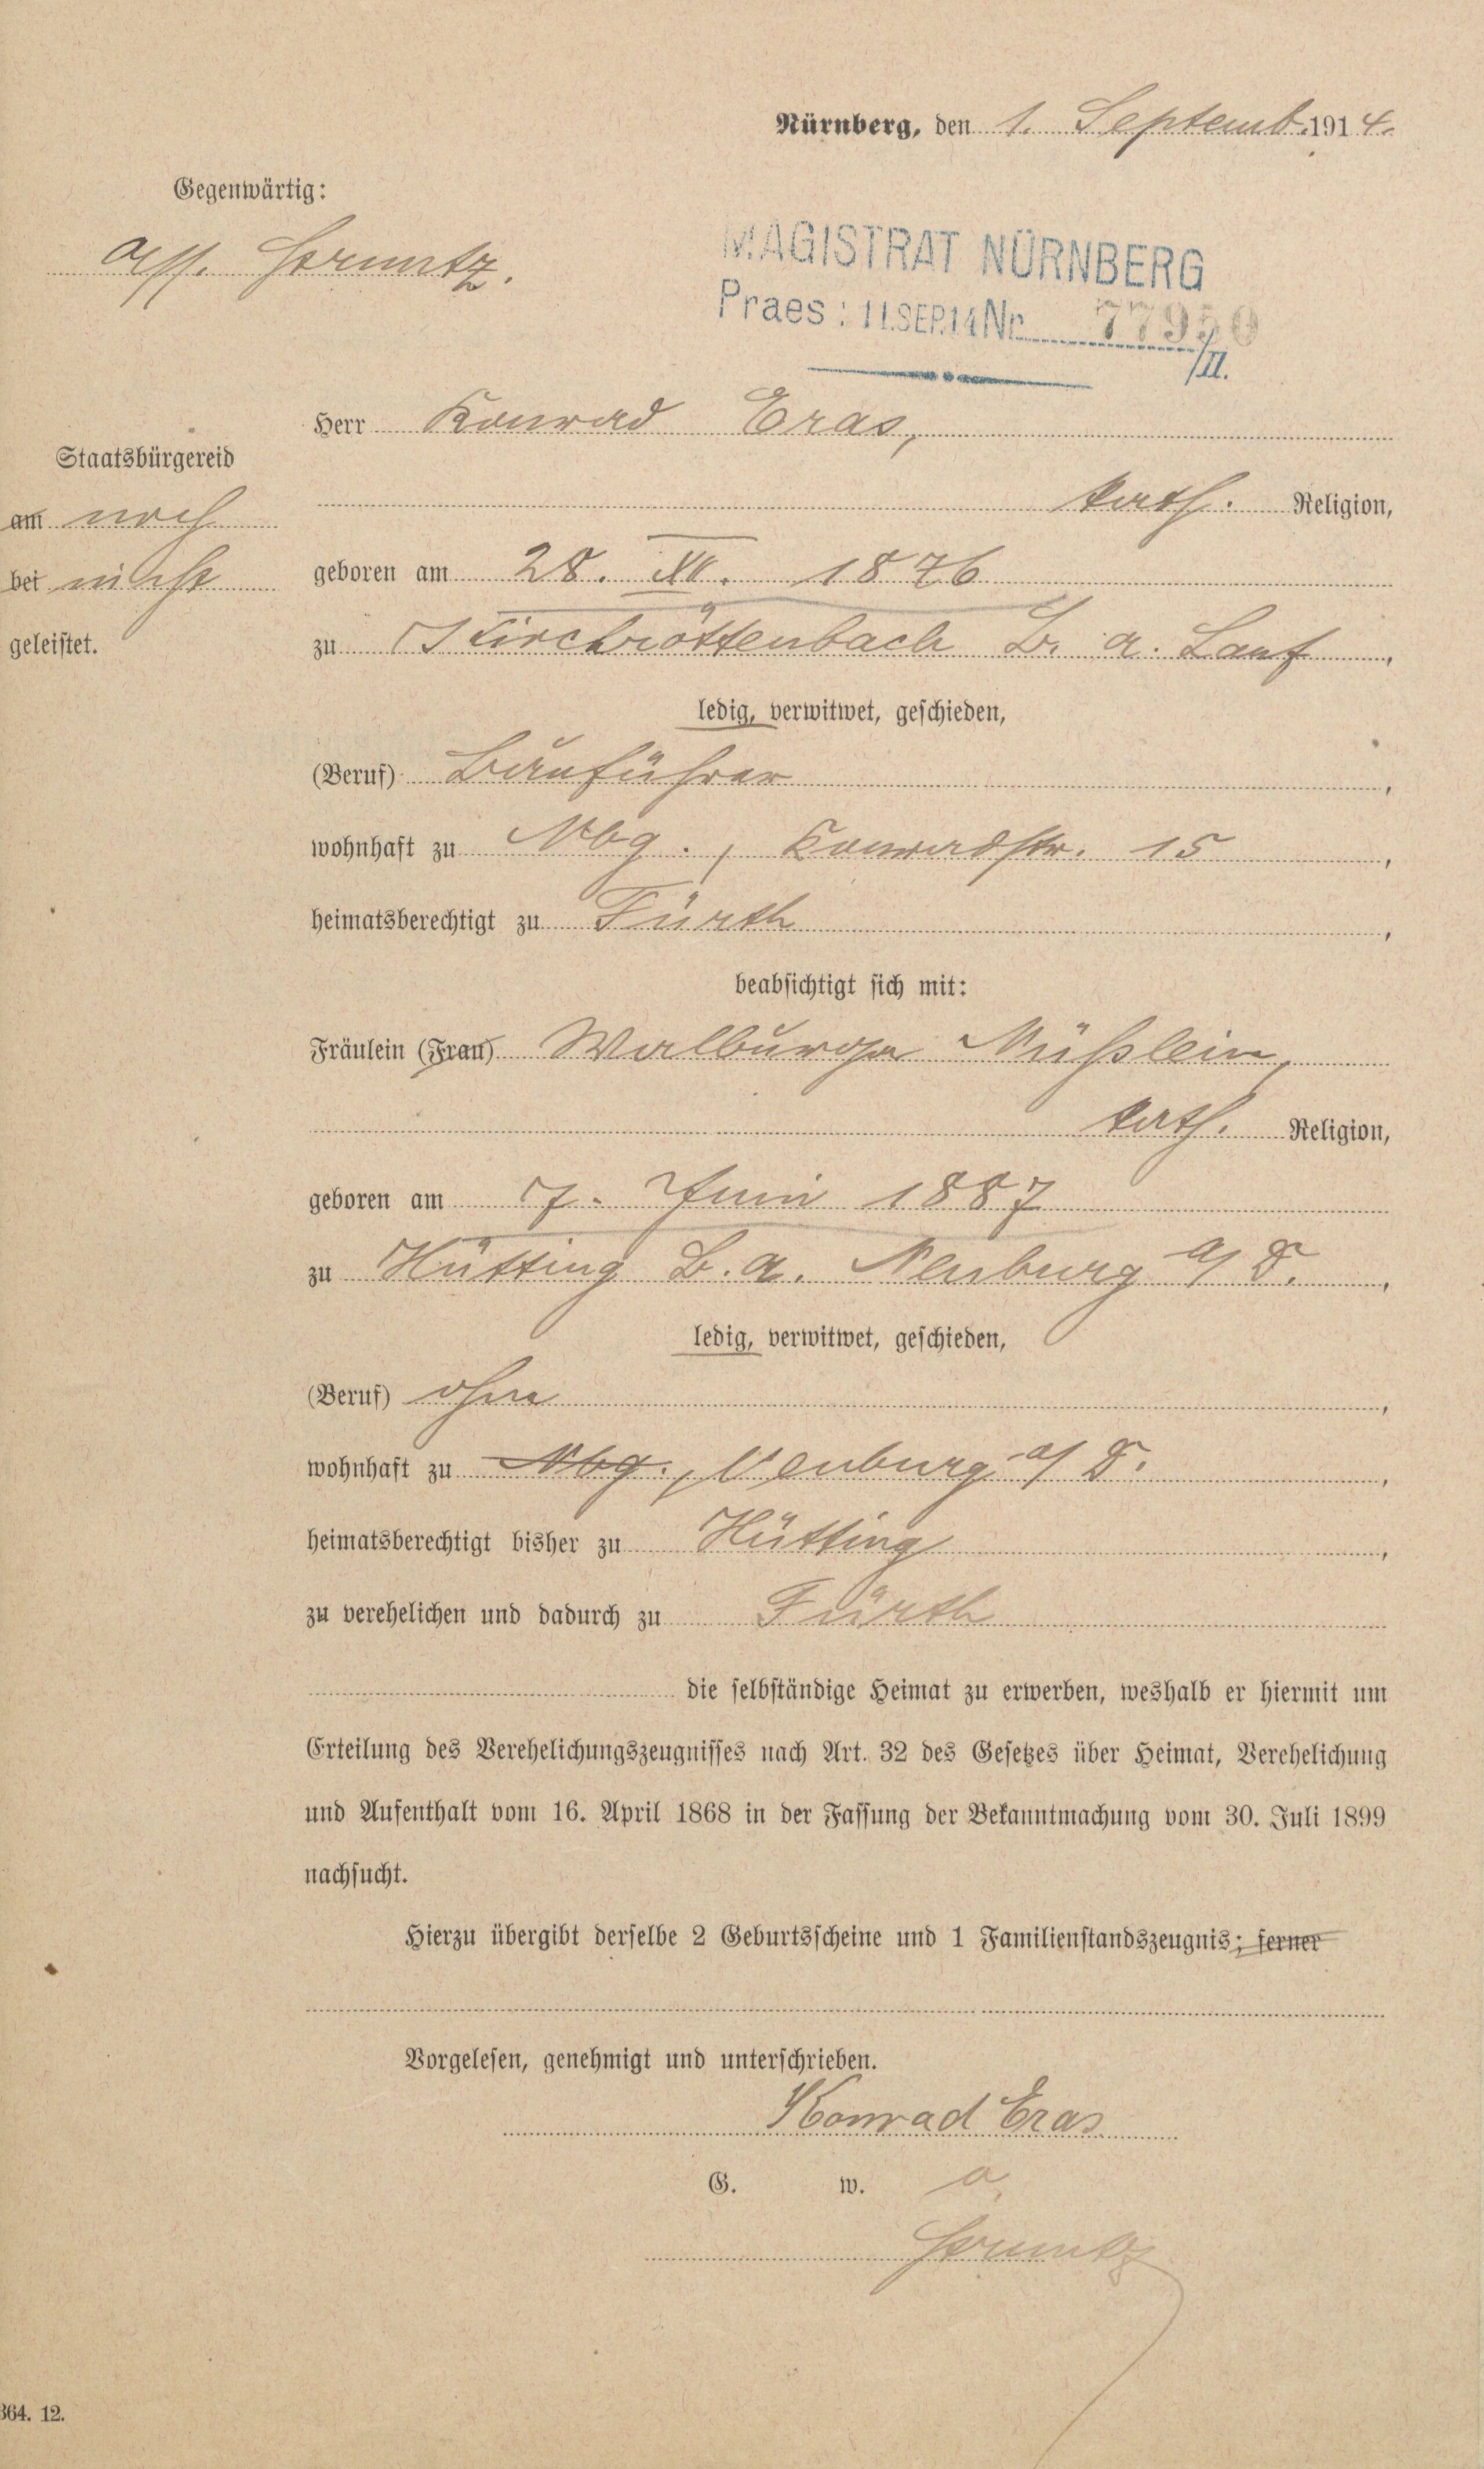 Nürnberg, den 1. Septemb. 1914.
Gegenwärtig:
Ass.
MAGISTRAT NÜRNBERG
Praes: 11.SEP.14 Nr. 77950
/II.
Herr Konrad Eras,
Staatsbürgereid
kath. Religion,
am noch
geboren am 28. XI. 1876
bei nicht
zu Kirchröttenbach B. a. Lauf,
geleistet.
ledig, verwitwet, geschieden,
(Beruf) Bauführer,
wohnhaft zu Nbg., Konradstr. 15,
heimatsberechtigt zu Fürth,
beabsichtigt sich mit:
Fräulein (Frau) Walburga Nüßlein,
kath. Religion,
geboren am 7. Juni 1887
zu Hütting B. a. Neuburg a/D.,
ledig, verwitwet, geschieden,
(Beruf) ohne,
wohnhaft zu Nbg., Neuburg a/D.,
heimatsberechtigt bisher zu Hütting,
zu verehelichen und dadurch zu Fürth
die selbständige Heimat zu erwerben, weshalb er hiermit um
Erteilung des Verehelichungszeugnisses nach Art. 32 des Gesetzes über Heimat, Verehelichung
und Aufenthalt vom 16. April 1868 in der Fassung der Bekanntmachung vom 30. Juli 1899
nachsucht.
Hierzu übergibt derselbe 2 Geburtsscheine und 1 Familienstandszeugnis; ferner
Vorgelesen, genehmigt und unterschrieben.
Konrad Eras
G. w. o.
364. 12.